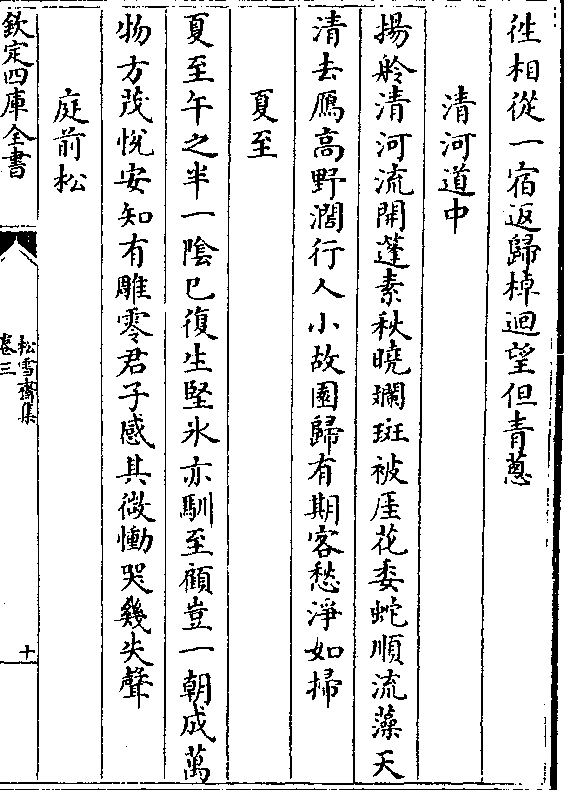 徃相從一宿返歸棹迴望但青蔥
清河道中
揚舲清河流開蓬素秋曉斕斑被厓花委蛇順流藻天
清去鴈高野濶行人小故園歸有期客愁淨如掃
夏至
夏至午之半一陰已復生堅氷亦馴至顧豈一朝成萬
物方茂悅安知有雕零君子感其微慟哭幾失聲
庭前松
欽定四庫全書
松雪齋集
卷三
十